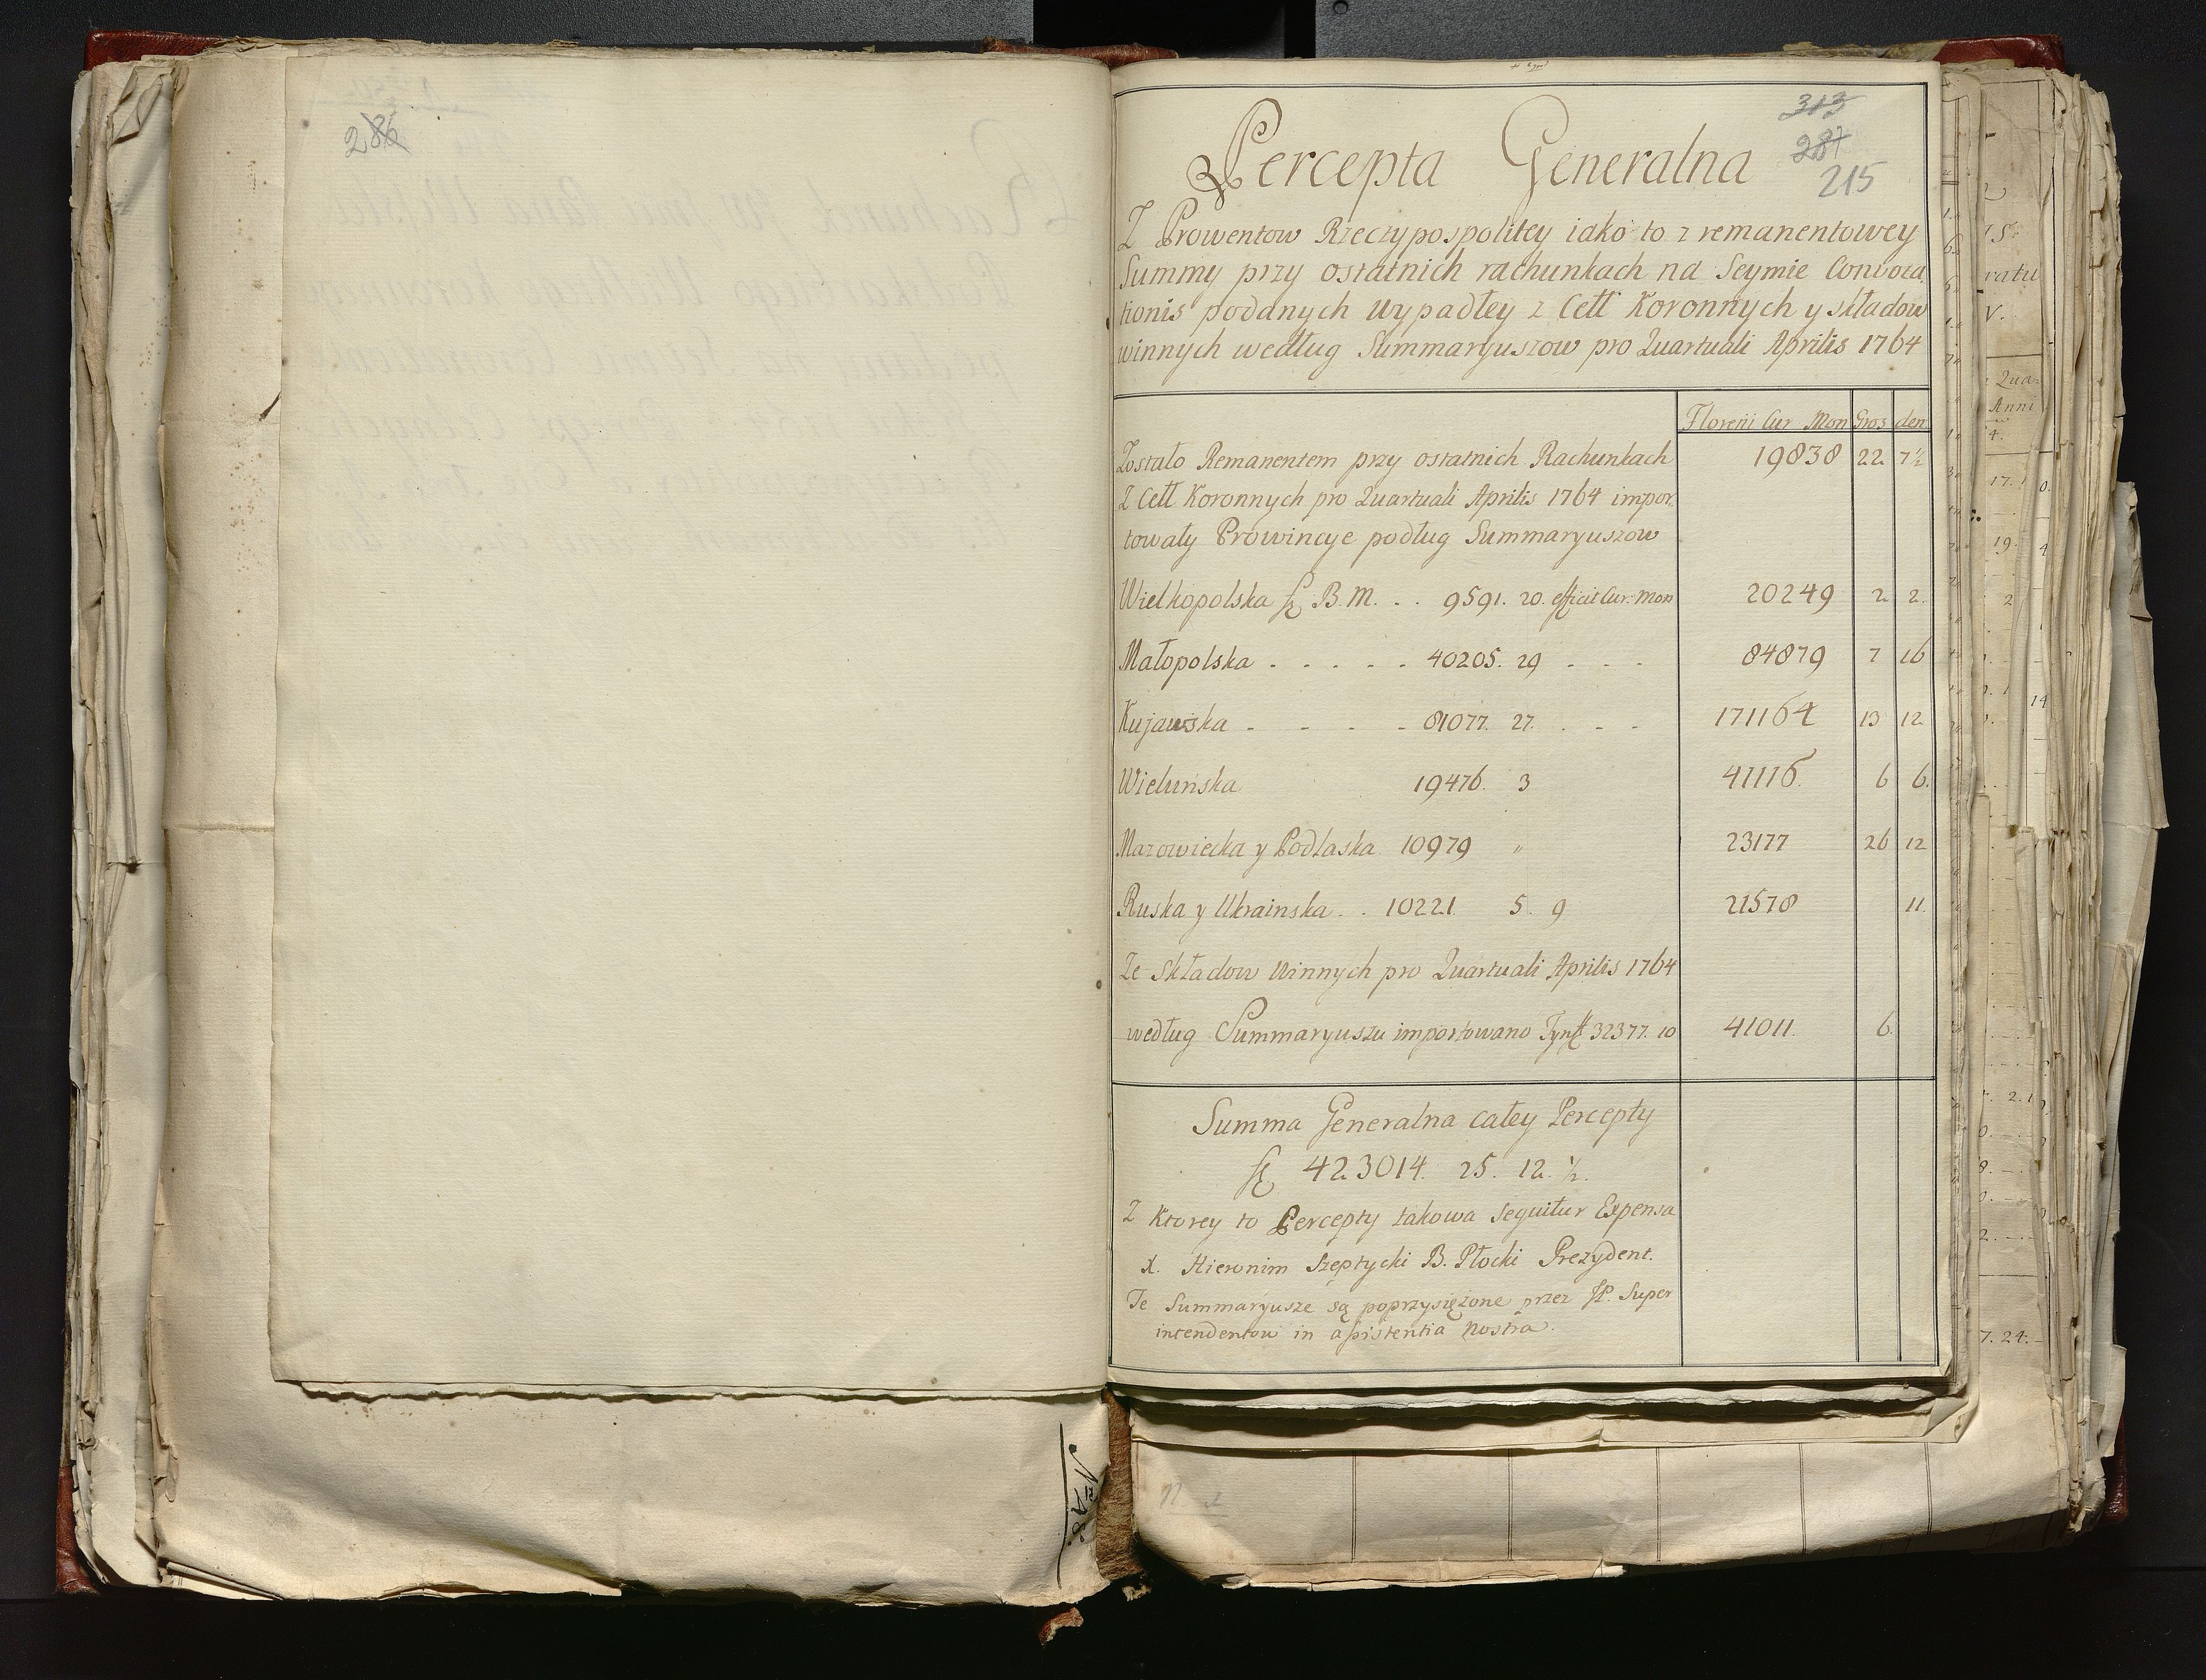 286
313
287
215
Percepta Generalna
Z Prowentow Rzeczypospolitey iako to z remanentowey
Summy przy ostatnich rachunkach na Seymie Convoca
tionis podanych wypadłey z Cełł Koronnych y składow
winnych według Summaryuszow pro Quartuali Aprilis 1764
Floreni Cur Mon Gros den
Zostało Remanentem przy ostatnich Rachunkach 19838 22 7½
Z Cełł Koronnych pro Quartuali Aprilis 1764 impor
towały Prowincye podług Summaryuszow
Wielkopolska fl B. M. . . 9591. 20. efficit Cur: Mon 20249 2 2.
Małopolska . . . . . 40205. 29 . . . 84879 7 16
Kujawska - - - - 81077. 27. . - - 171164 13 12
Wieluńska 19476. 3 41116. 6 6.
Mazowiecka y Podlaska 10979 " 23177 26 12
Ruska y Ukrainska . . 10221. 5. 9 21578 11.
Ze Składow Winnych pro Quartuali Aprilis 1764
według Summaryuszu importowano Tynff 32377. 10 41011. 6.
Summa Generalna całey Percepty
fl 423014. 25. 12. ½.
Z Ktorey to Percepty takowa sequitur Expensa
X. Hieronim Szeptycki B. Płocki Prezydent.
Te Summaryusze są poprzysiężone przez JP. Super
intendentow in assistentia nostra.